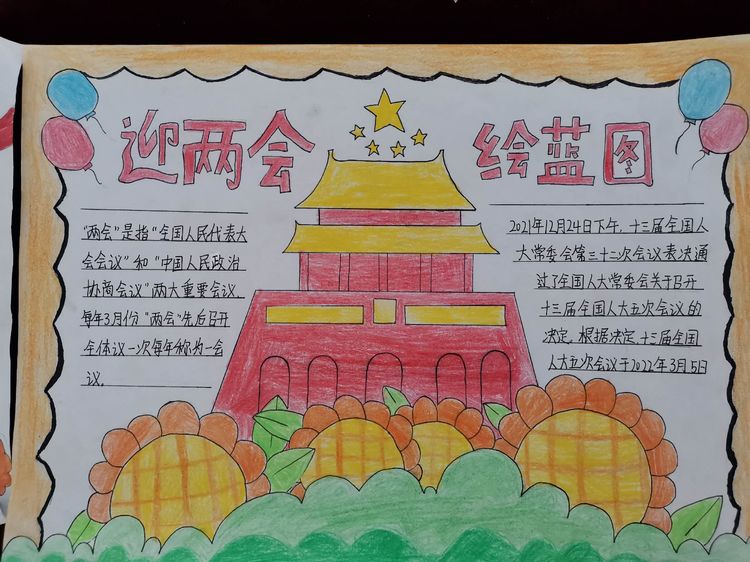 迎两会 绘蓝图
"两会"是指"全国人民代表大
会会议"和"中国人民政治
协商会议"两大重要会议,
每年3月份"两会"先后召开
全体议一次每年称为一会
议.
2021年12月24日下午,十三届全国人
大常委会第三十二次会议表决通
过了全国人大常委会关于召开
十三届全国人大五次会议的
决定,根据决定,十三届全国
人大五次会议于2022年3月5日